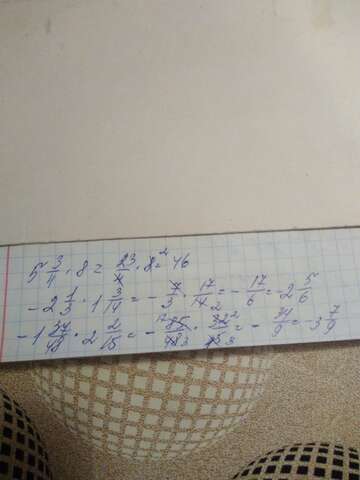 5 3/4 · 8 = 23/4 · 8² = 46
-2 1/3 · 1 3/14 = - 7/3 · 17/14 2 = - 17/6 = -2 5/6
-1 37/48 · 2 2/15 = - 17 85/48 3 · 32 2/15 3 = - 34/9 = -3 7/9